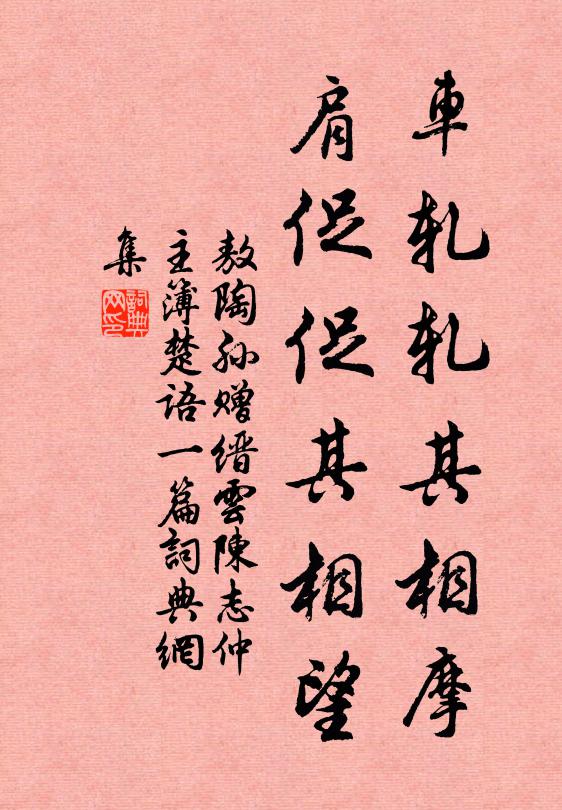 車軋軋其相摩
肩促促其相望
敖陶孙赠缙雲陳志仲
主薄楚语一篇詞典網
集
詞典
网印